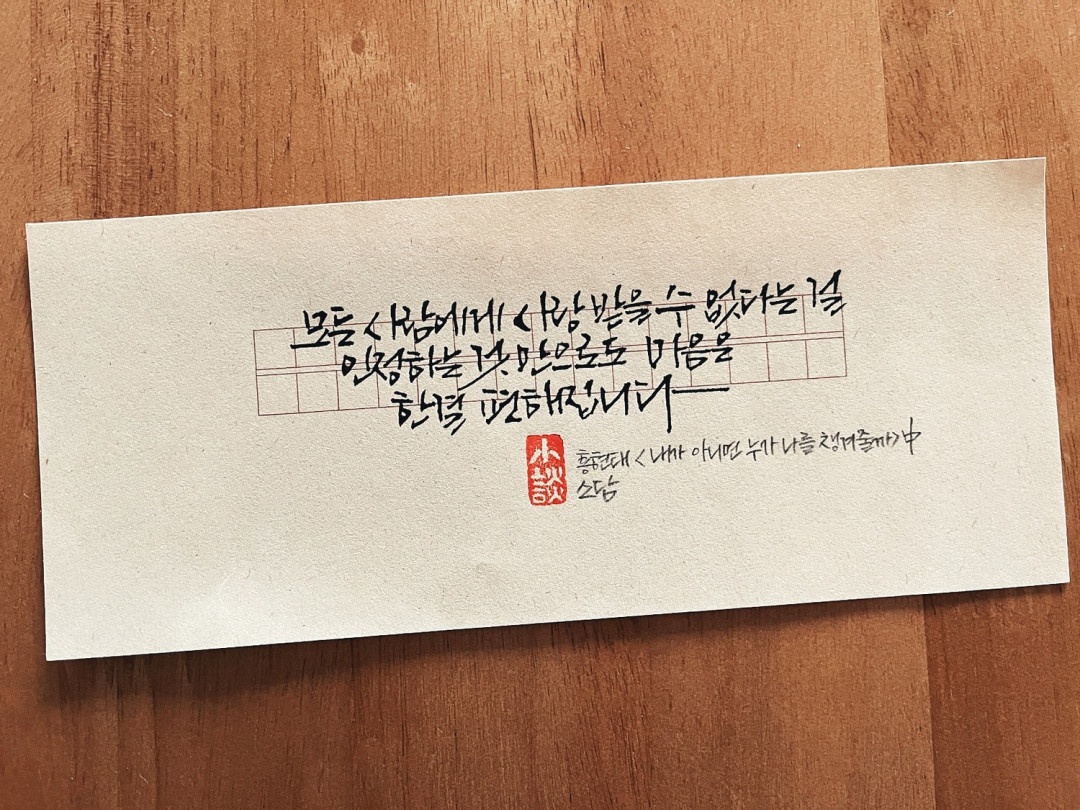 모든 사람에게 사랑 받을 수 없다는 걸
인정하는 것 만으로도 마음은
한결 편해집니다
小談
흥현태 <내가 아니면 누가 나를 챙겨줄까> 中
소담